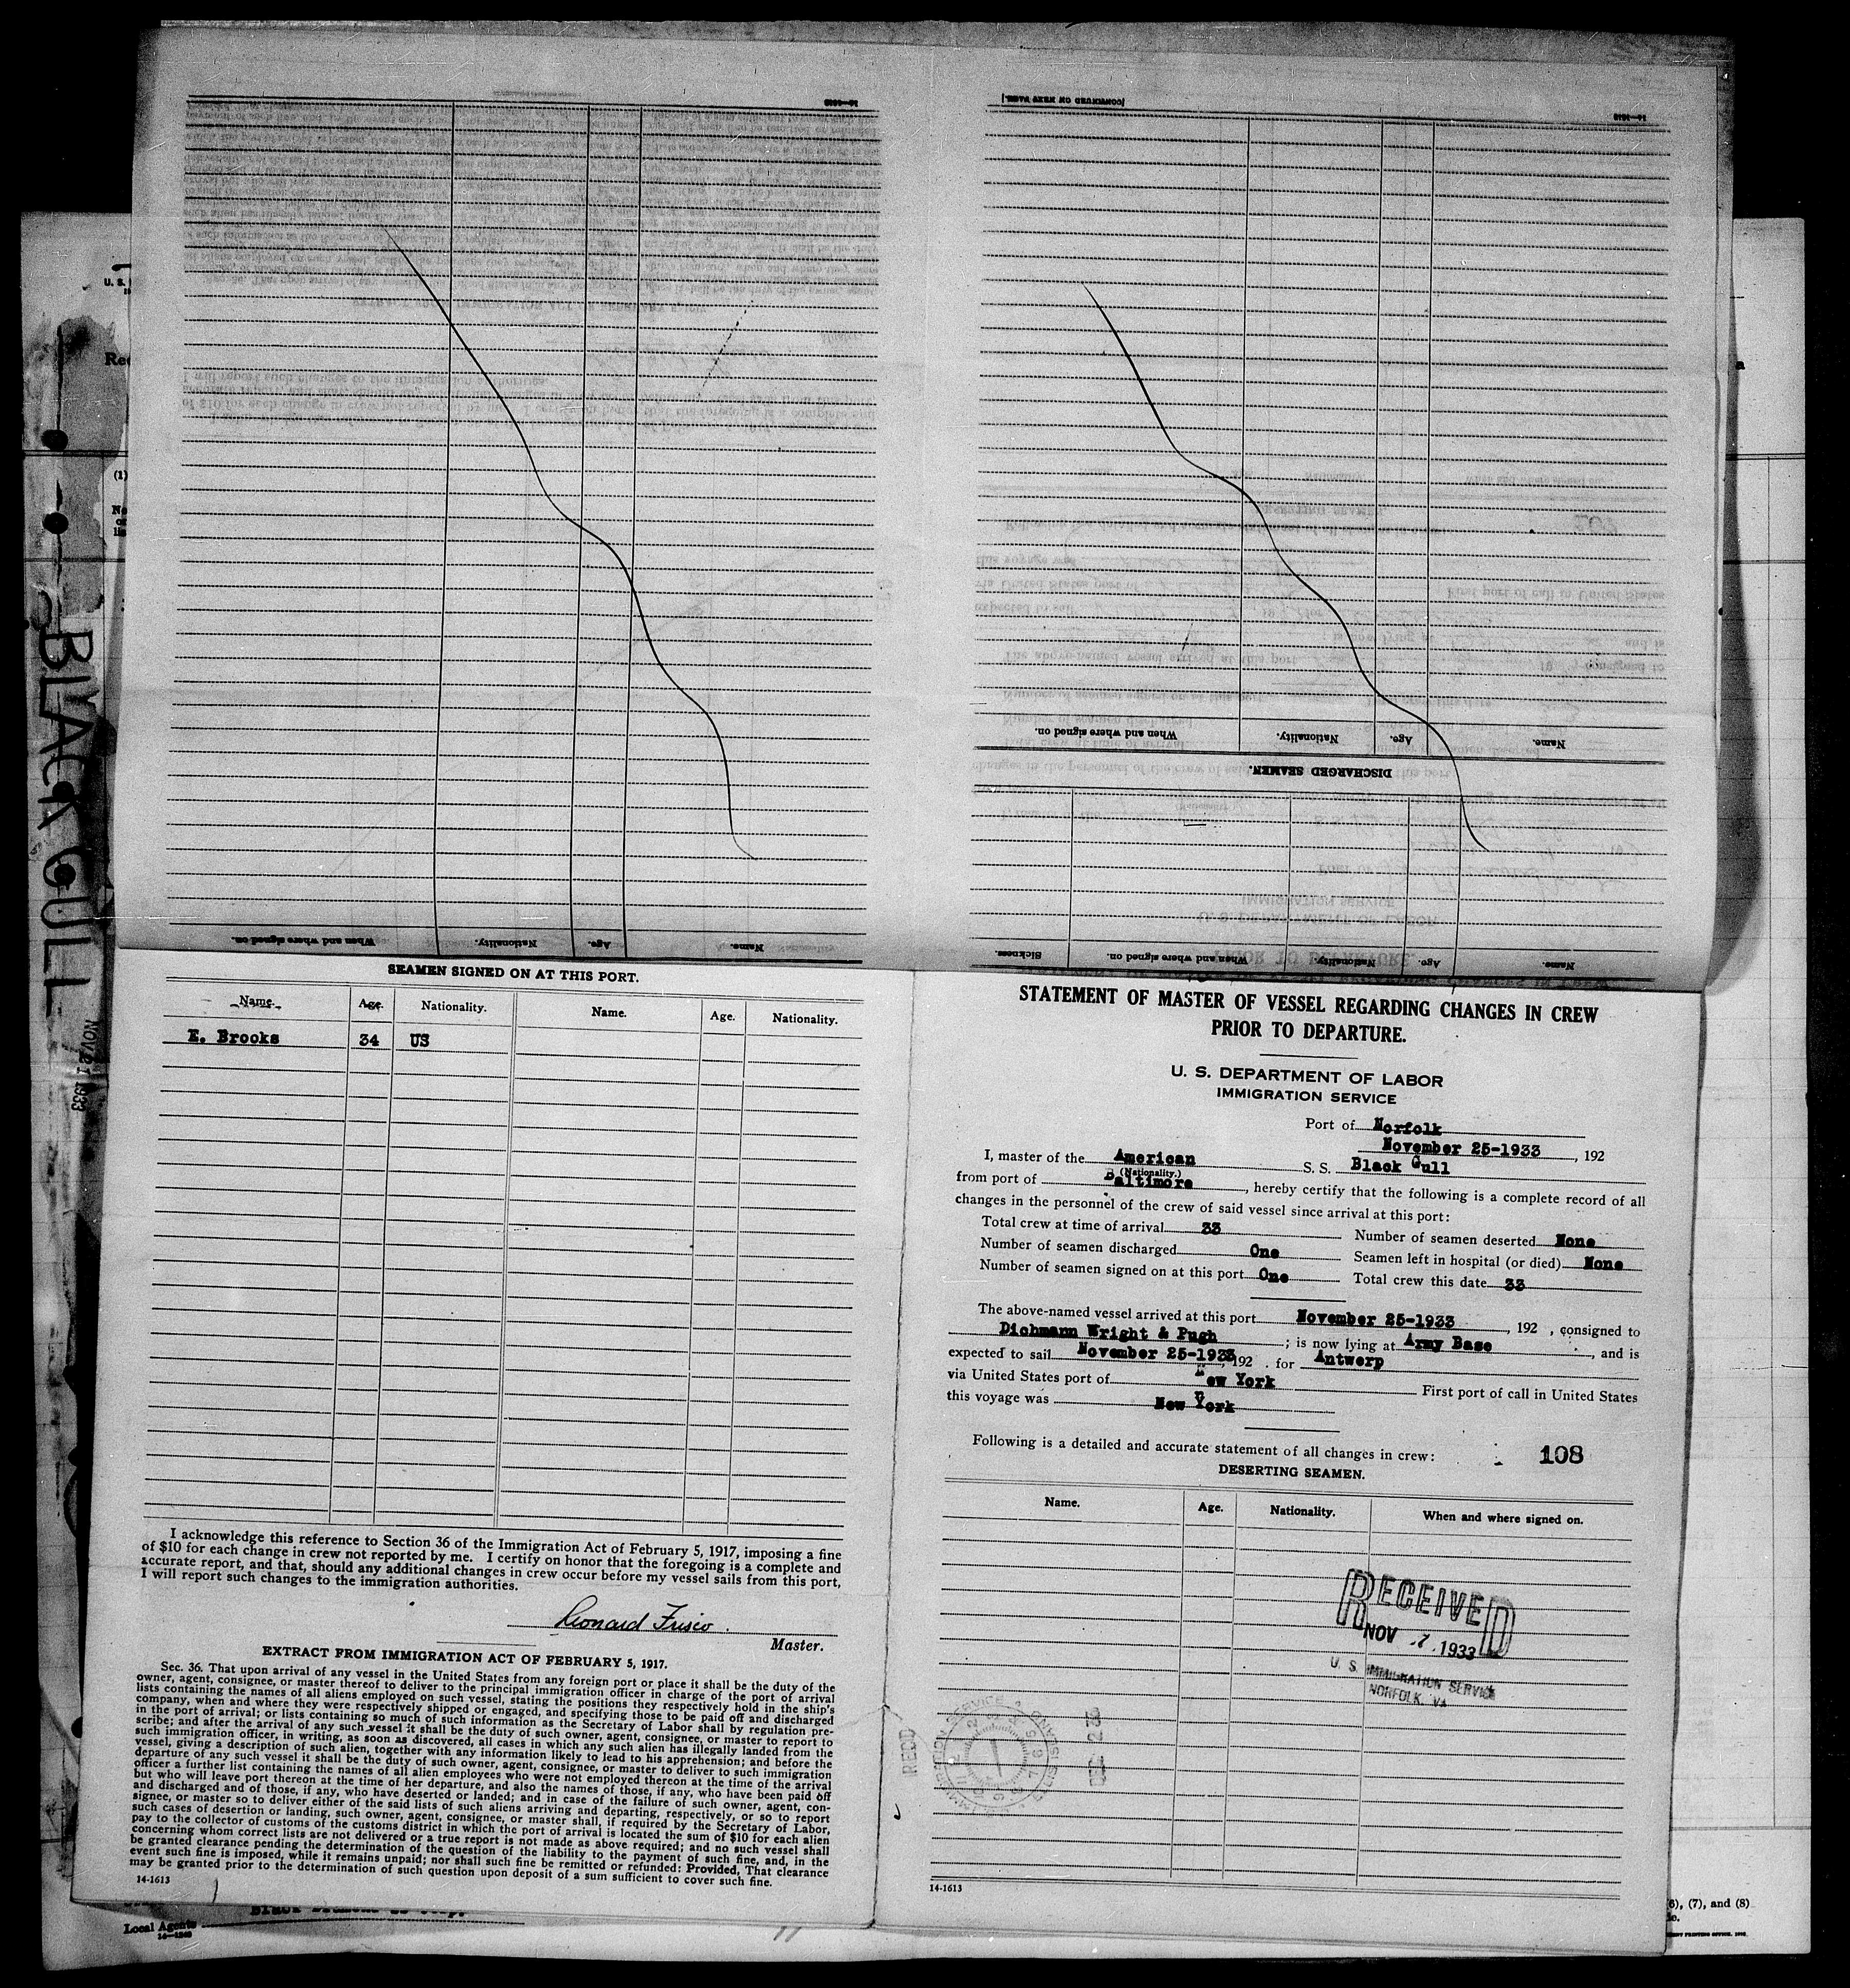 BLACK GULL
NOV 21 1933
14-1613
14-1613
[CONTINUED ON NEXT PAGE.]
When and where signed on.
Nationality.
Age.
Name.
DISCHARGED SEAMEN.
Name.
Age.
Nationality.
When and where signed on.
Name.
Age.
Nationality.
When and where signed on.
Sickness
SEAMEN SIGNED ON AT THIS PORT.
Name. Age. Nationality. Name. Age. Nationality.
E. Brooks 34 US
I acknowledge this reference to Section 36 of the Immigration Act of February 5, 1917, imposing a fine
of $10 for each change in crew not reported by me. I certify on honor that the foregoing is a complete and
accurate report, and that, should any additional changes in crew occur before my vessel sails from this port,
I will report such changes to the immigration authorities.
Leonard Frisco.
Master.
EXTRACT FROM IMMIGRATION ACT OF FEBRUARY 5, 1917.
Sec. 36. That upon arrival of any vessel in the United States from any foreign port or place it shall be the duty of the
owner, agent, consignee, or master thereof to deliver to the principal immigration officer in charge of the port of arrival
lists containing the names of all aliens employed on such vessel, stating the positions they respectively hold in the ship's
company, when and where they were respectively shipped or engaged, and specifying those to be paid off and discharged
in the port of arrival; or lists containing so much of such information as the Secretary of Labor shall by regulation pre-
scribe; and after the arrival of any such vessel it shall be the duty of such owner, agent, consignee, or master to report to
such immigration officer, in writing, as soon as discovered, all cases in which any such alien has illegally landed from the
vessel, giving a description of such alien, together with any information likely to lead to his apprehension; and before the
departure of any such vessel it shall be the duty of such owner, agent, consignee, or master to deliver to such immigration
officer a further list containing the names of all alien employees who were not employed thereon at the time of the arrival
but who will leave port thereon at the time of her departure, and also the names of those, if any, who have been paid off
and discharged and of those, if any, who have deserted or landed; and in case of the failure of such owner, agent, con-
signee, or master so to deliver either of the said lists of such aliens arriving and departing, respectively, or so to report
such cases of desertion or landing, such owner, agent, consignee, or master shall, if required by the Secretary of Labor,
pay to the collector of customs of the customs district in which the port of arrival is located the sum of $10 for each alien
concerning whom correct lists are not delivered or a true report is not made as above required; and no such vessel shall
be granted clearance pending the determination of the question of the liability to the payment of such fine, and, in the
event such fine is imposed, while it remains unpaid; nor shall such fine be remitted or refunded: Provided, That clearance
may be granted prior to the determination of such question upon deposit of a sum sufficient to cover such fine.
14-1613
Local Agents
STATEMENT OF MASTER OF VESSEL REGARDING CHANGES IN CREW
PRIOR TO DEPARTURE.
U. S. DEPARTMENT OF LABOR
IMMIGRATION SERVICE
Port of Norfolk
November 25-1933, 192
I, master of the American S. S. Black Gull
(Nationality.)
from port of Baltimore, hereby certify that the following is a complete record of all
changes in the personnel of the crew of said vessel since arrival at this port:
Total crew at time of arrival 33 Number of seamen deserted None
Number of seamen discharged One Seamen left in hospital (or died) None
Number of seamen signed on at this port One Total crew this date 33
The above-named vessel arrived at this port November 25-1933, 192 , consigned to
Dichmann Wright & Pugh; is now lying at Army Base, and is
expected to sail November 25-1933, 192 . for Antwerp
via United States port of New York First port of call in United States
this voyage was New York
Following is a detailed and accurate statement of all changes in crew: 108
DESERTING SEAMEN.
Name. Age. Nationality. When and where signed on.
RECEIVED
NOV 7 1933
U. S. IMMIGRATION SERVICE
NORFOLK, VA
REC'D
14-1613
(6), (7), and (8)